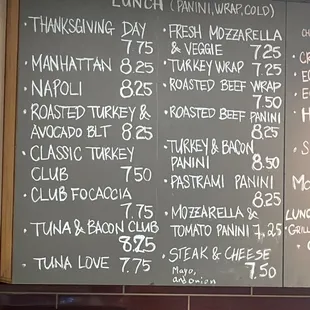 LUNCH (PANINI, WRAP, COLD)
• THANKSGIVING DAY
7.75
• MANHATTAN 8.25
• NAPOLI 8.25
• ROASTED TURKEY &
AVOCADO BLT 8.25
• CLASSIC TURKEY
CLUB 7.50
• CLUB FOCACCIA
7.75
• TUNA & BACON CLUB
8.25
• TUNA LOVE 7.75
• FRESH MOZZARELLA
& VEGGIE 7.25
• TURKEY WRAP 7.25
• ROASTED BEEF WRAP
7.50
• ROASTED BEEF PANINI
8.25
• TURKEY & BACON
PANINI 8.50
• PASTRAMI PANINI
8.25
• MOZZARELLA &
TOMATO PANINI 7,25
• STEAK & CHEESE
Mayo, 7.50
and onion
LUNC
GRIL